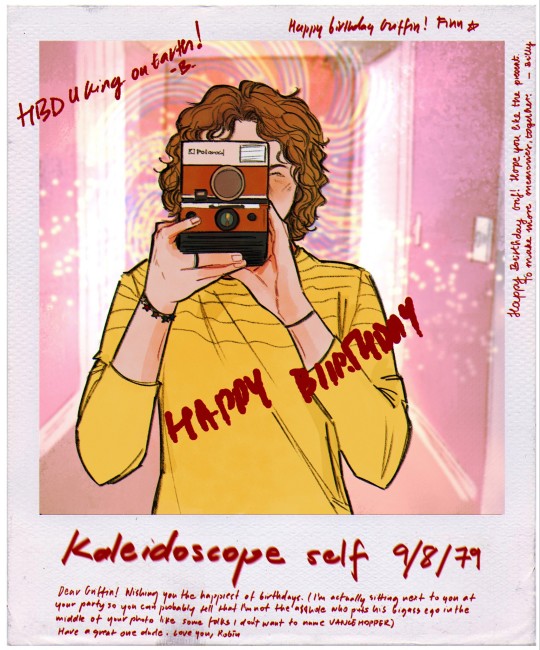 Happy birthday Griffin! Finn ☆
HBD U King on Earth!
-B-
Happy Birthday Grif! Hope you like the present.
To make more memories together. - Billy
Polaroid
HAPPY BIIRTHDAY
Kaleidoscope self 9/8/79
Dear Griffin! Wishing you the happiest of birthdays. (I'm actually sitting next to you at
your party so you can probably tell that I'm not the asshole who puts his bigass ego in the
middle of your photo like some folks I don't want to name VANCE HOPPER)
Have a great one dude. Love you, Robin